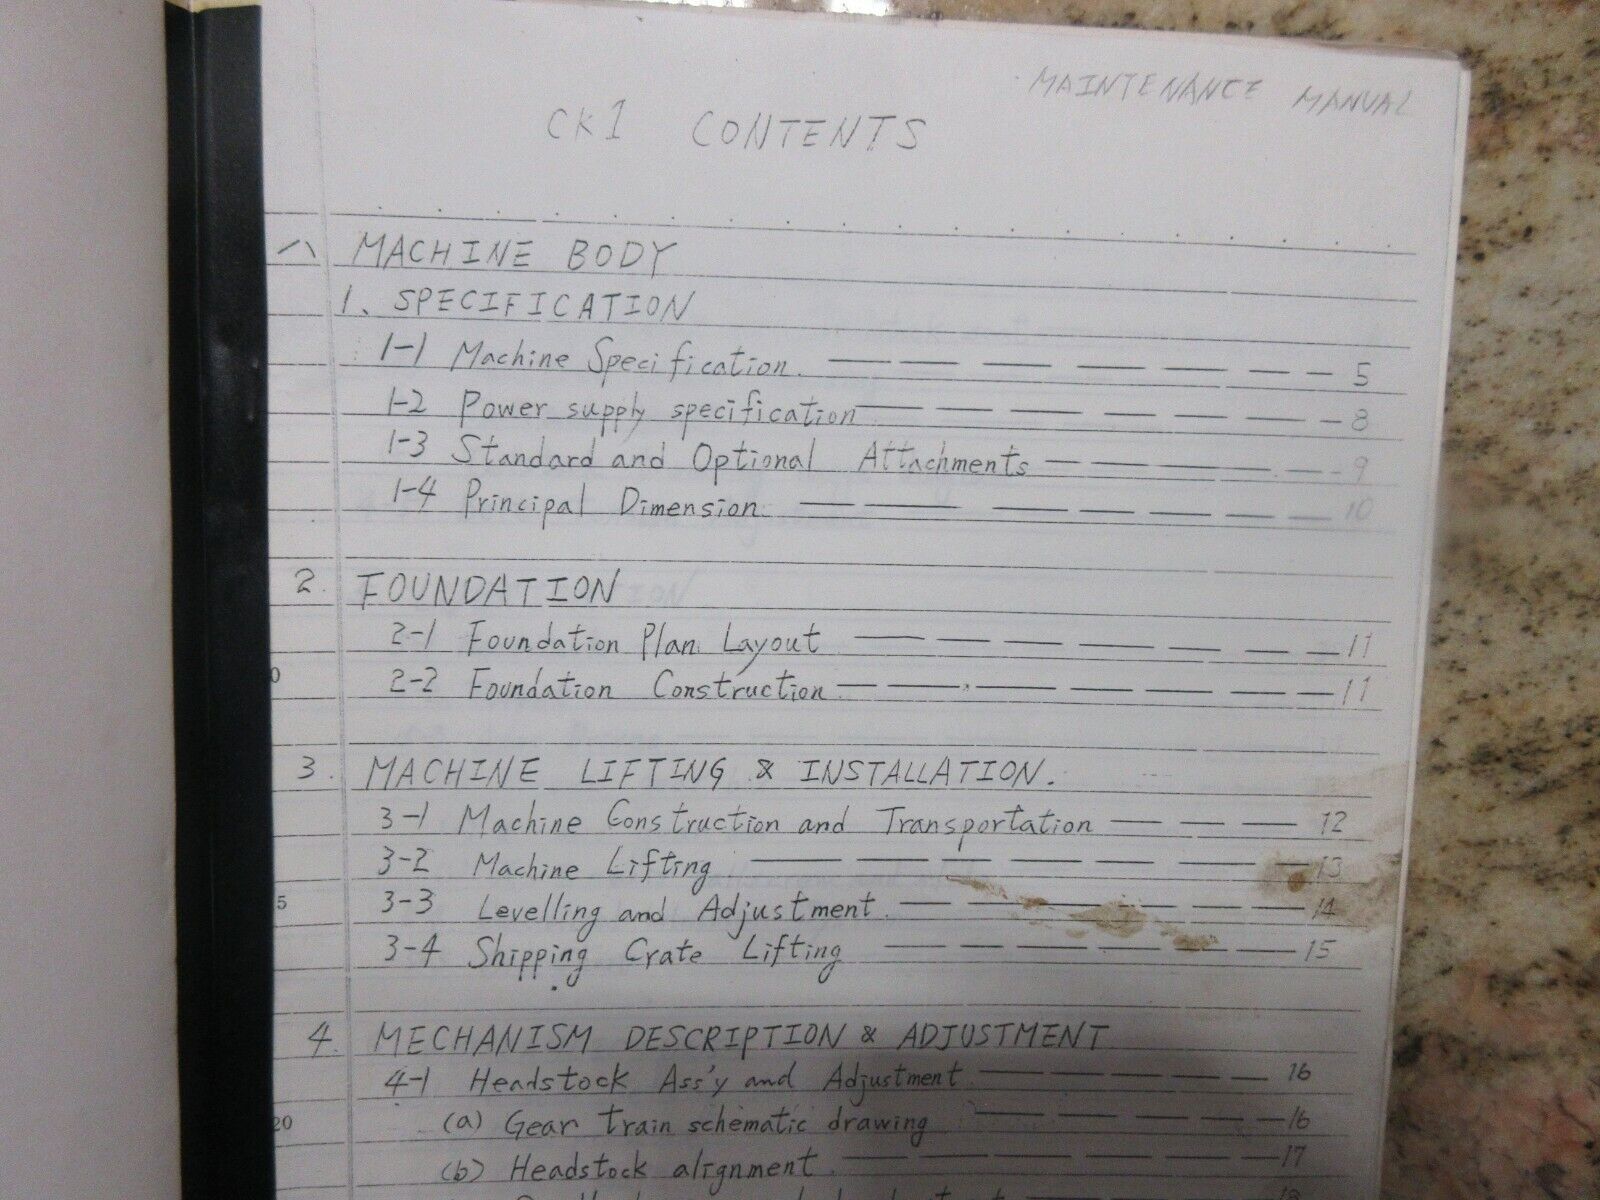 MAINTENANCE MANUAL
CK1 CONTENTS
MACHINE BODY
1. SPECIFICATION
1-1 Machine Specification. — — — — — — — — 5
1-2 Power supply specification — — — — — — — 8
1-3 Standard and Optional Attachments — — — — — 9
1-4 Principal Dimension — — — — — — — — 10
2. FOUNDATION
2-1 Foundation Plan Layout — — — — — — — — 11
2-2 Foundation Construction — — — — — — — — 11
3. MACHINE LIFTING & INSTALLATION.
3-1 Machine Construction and Transportation — — — — 12
3-2 Machine Lifting — — — — — — — — 13
15
3-3 Levelling and Adjustment — — — — — — — 14
3-4 Shipping Crate Lifting — — — — — — — 15
4. MECHANISM DESCRIPTION & ADJUSTMENT
4-1 Headstock Ass'y and Adjustment — — — — — — 16
20
(a) Gear train schematic drawing — — — — — — 16
(b) Headstock alignment — — — — — — — 17